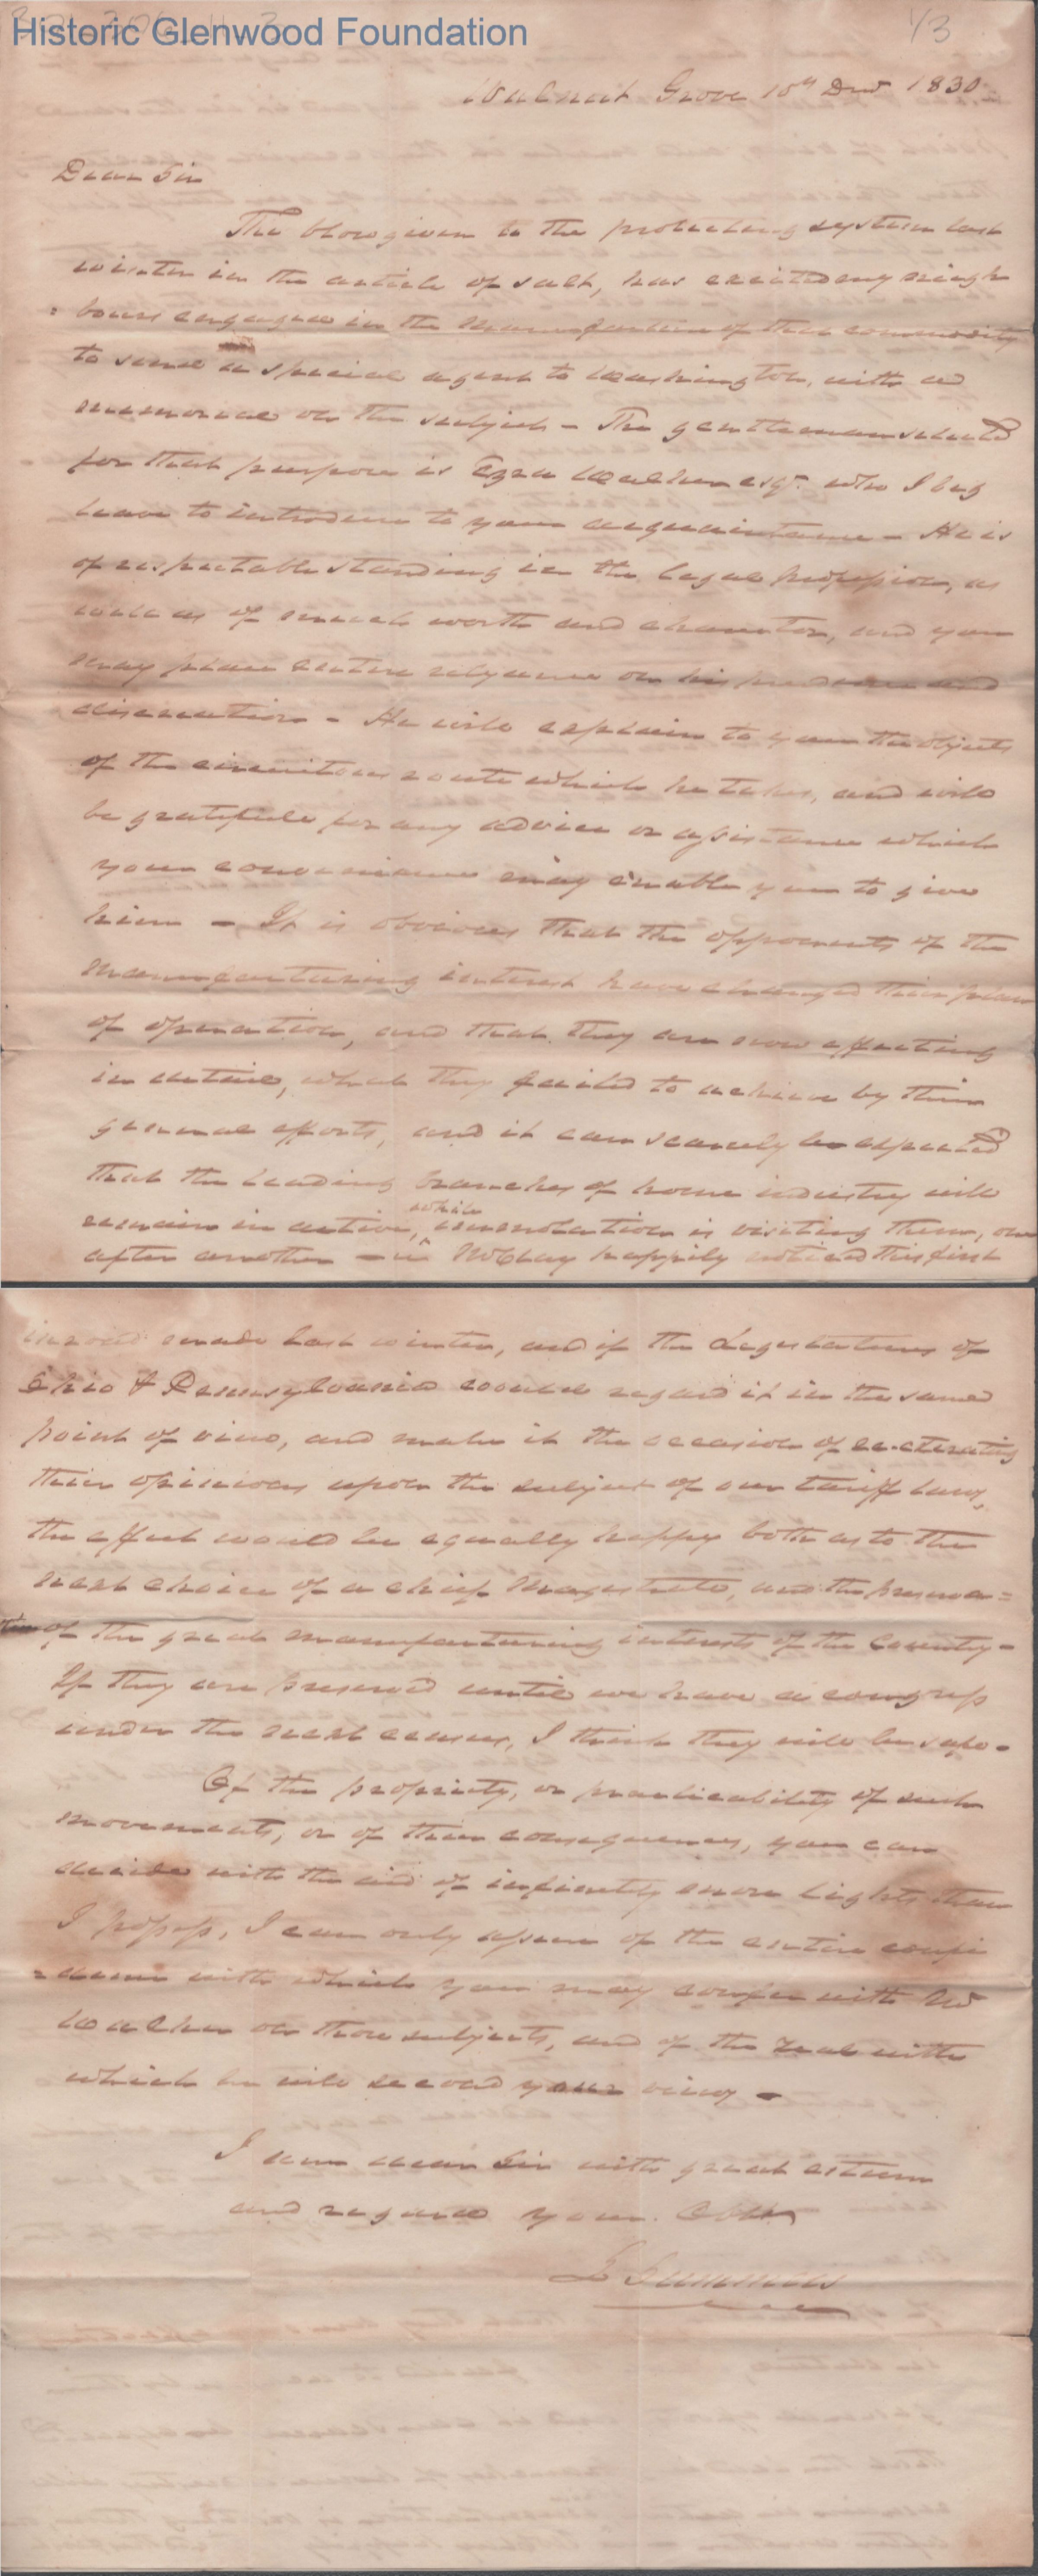 Historic Glenwood Foundation
1/3
Walnut Grove 10th Decr 1830
Dear Sir
The blow given to the protecting system last
winter in the article of salt, has excited my neigh
= bours engaged in the manufacture of that commodity
to send a special agent to Washington, with a
memorial on the subject - The gentleman selected
for that purpose is Ezra Walker esqr. who I beg
leave to introduce to your acquaintance - He is
of respectable standing in the legal profession, as
well as of much worth and character, and you
may place entire relyance on his prudence and
discreation - He will explain to you the objects
of the circuitous route which he takes, and will
be gratefull for any advice or assistance which
your convenience may enable you to give
him - It is obvious that the opponents of the
manufacturing interest have changed their plan
of operation, and that they are now effecting
in detail, what they failed to achieve by their
general efforts, and it can scarcely be expected
that the leading branches of home industry will
remain in active, while immolation is visiting them, one
after another - Mr Clay happily noticed this first
inroad made last winter, and if the Legislatures of
Ohio & Pennsylvania would regard it in the same
point of view, and make it the occasion of re-iterating
their opinions upon the subject of our tariff laws,
the effect would be equally happy both as to the
next choice of a chief Magistrate, and the preserva=
tion of the great manufacturing interests of the Country -
If they are preserved until we have a congress
under the next census, I think they will be safe -
Of the propriety, or practicability of such
movements, or of their consequences, you can
decide with the aid of infinitely more lights than
I possess, I can only assure of the entire confi
= dence with which you may confer with Mr
Walker on those subjects, and of the zeal with
which he will second your views -
I am dear Sir with great esteem
and regard your. Obt
L Summers